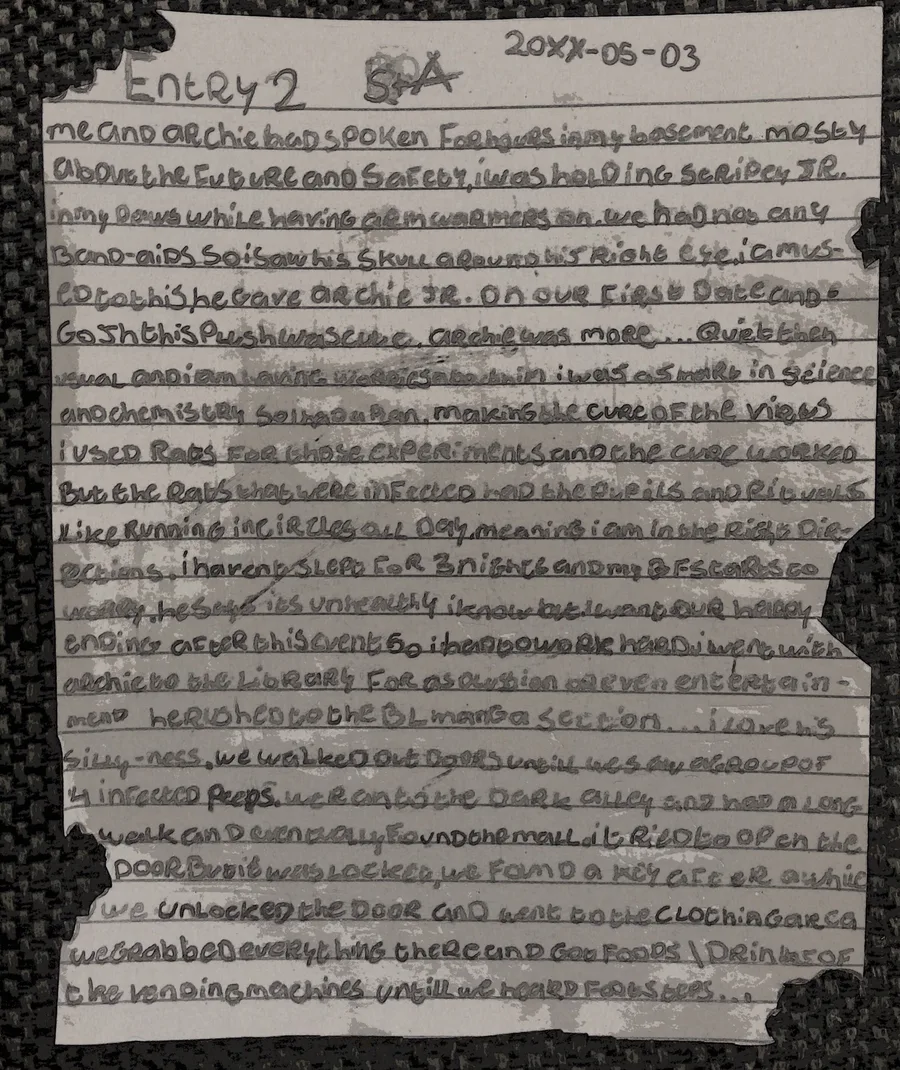 20XX-05-03
Entry 2
me and archie had spoken For hours in my basement mostly
about the Future and Safety, i was holding stripey JR.
in my Paws while having armwarmers on. we had not any
Band-aids So i saw his skull around his Right eye, i amus-
ed to this, he Gave archie JR. on our First Date and
Gosh this Plush was cute. archie was more... Quiet then
usual and i am having worries i was a smart in Science
and chemistry so i had a Plan. making the cure of the virus
i used Rats For those experiments and the cure worked
But the Rats that were infected had the Pupils and Rituals
Like Running in circles all Day, meaning i am in the Right Dir-
ections. i havent slept For 3 nights and my BF starts to
worry. he says its unhealthy i know but i want our happy
ending after this event So i had to work hard. i went with
archie to the Library For a solution or even entertain-
ment he rushed to the BL manga section... i love his
silly-ness. we walked out Doors untill we saw a Group of
4 infected Peeps. we ran to the Dark alley and had a long
walk and eventually Found the mall. i tried to open the
Door But it was locked, we Found a key after awhile
we unlocked the Door and went to the Clothing area
we Grabbed everything there and Got Foods \ Drinks of
the vending machines untill we heard Footsteps...